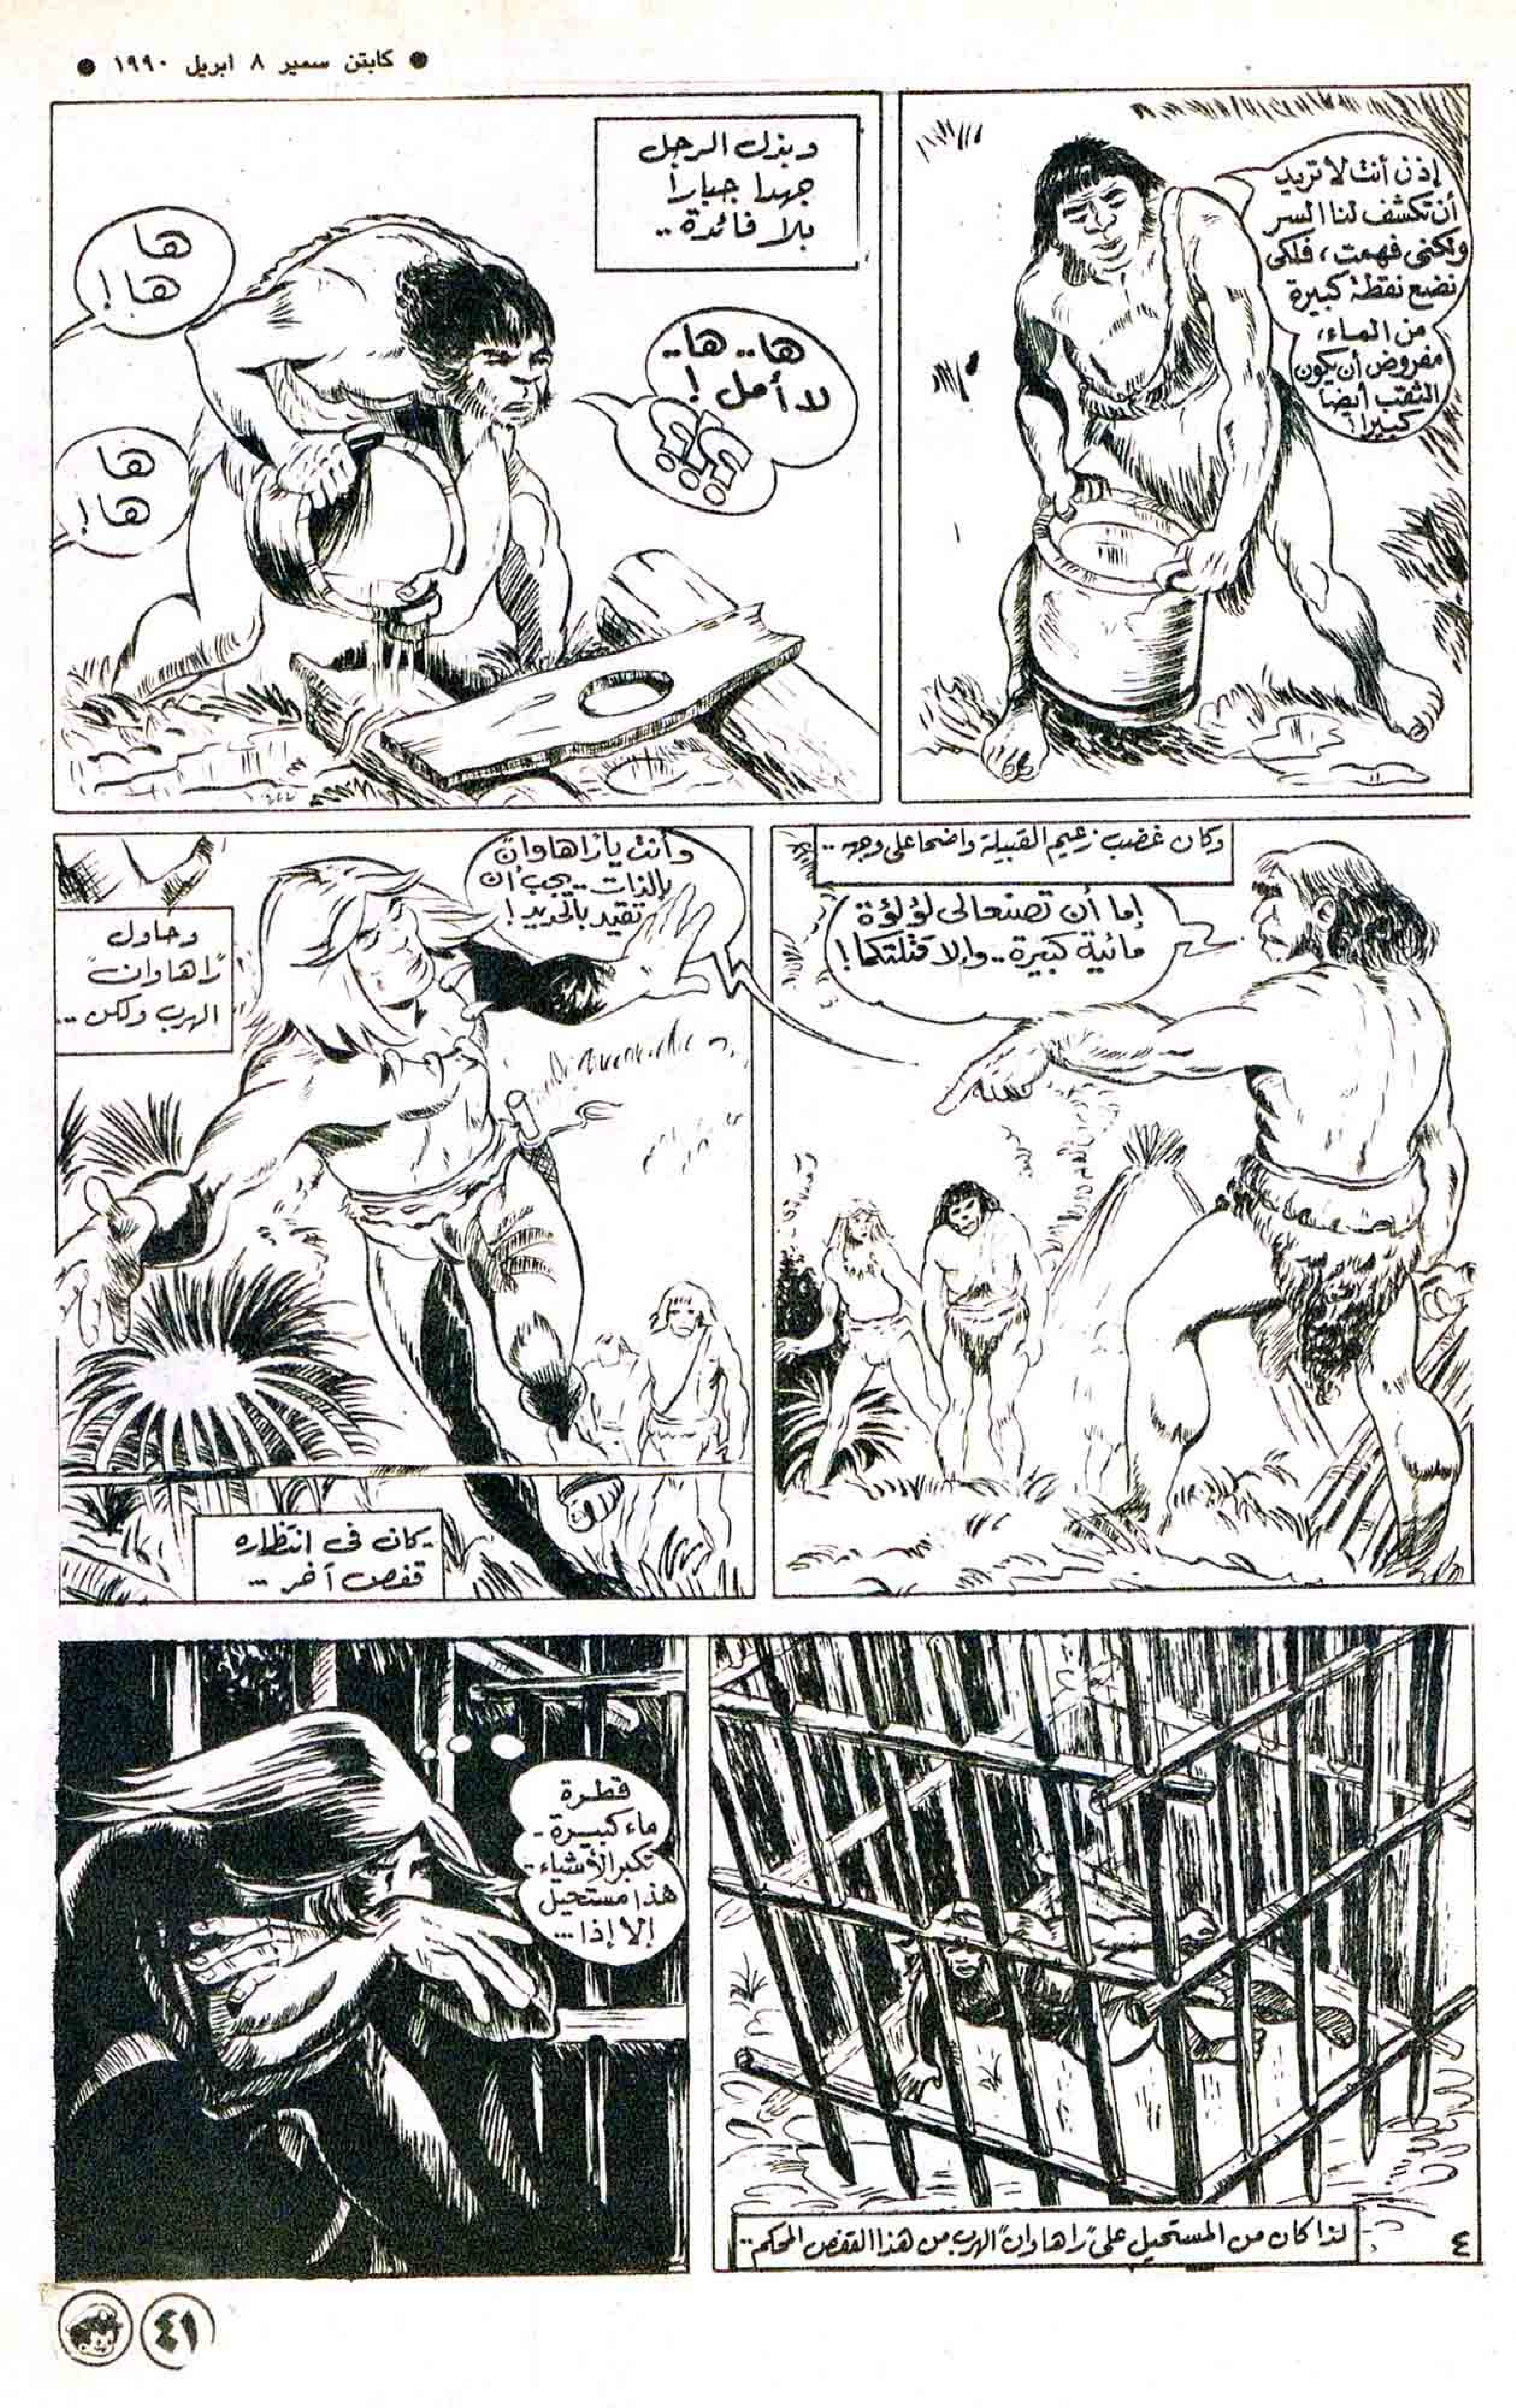 ● كابتن سمير ٨ ابريل ١٩٩٠ ●
إذن أنت لا تريد
أن تكشف لنا السر
ولكنى فهمت، فلكى
نضع نقطة كبيرة
من الماء،
مفروض أن يكون
الثقب أيضا
كبيرا!
وبذل الرجل
جهدا جبارا
بلا فائدة..
ها.. ها..
لا أمل!
؟؟؟
ها
ها!
ها
ها!
وكان غضب زعيم القبيلة واضحا على وجهه..
إما أن تصنعا لى لؤلؤة
مائية كبيرة.. وإلا قتلتكما!
وأنت يا "راهاوان"
بالذات.. يجب أن
تقيد بالحديد!
وحاول
"راهاوان"
الهرب ولكن..
كان فى انتظاره
قفص آخر...
لذا كان من المستحيل على "راهاوان" الهرب من هذا القفص المحكم..
٤
قطرة
ماء كبيرة-
تكبر الأشياء-
هذا مستحيل
إلا إذا...
٤١